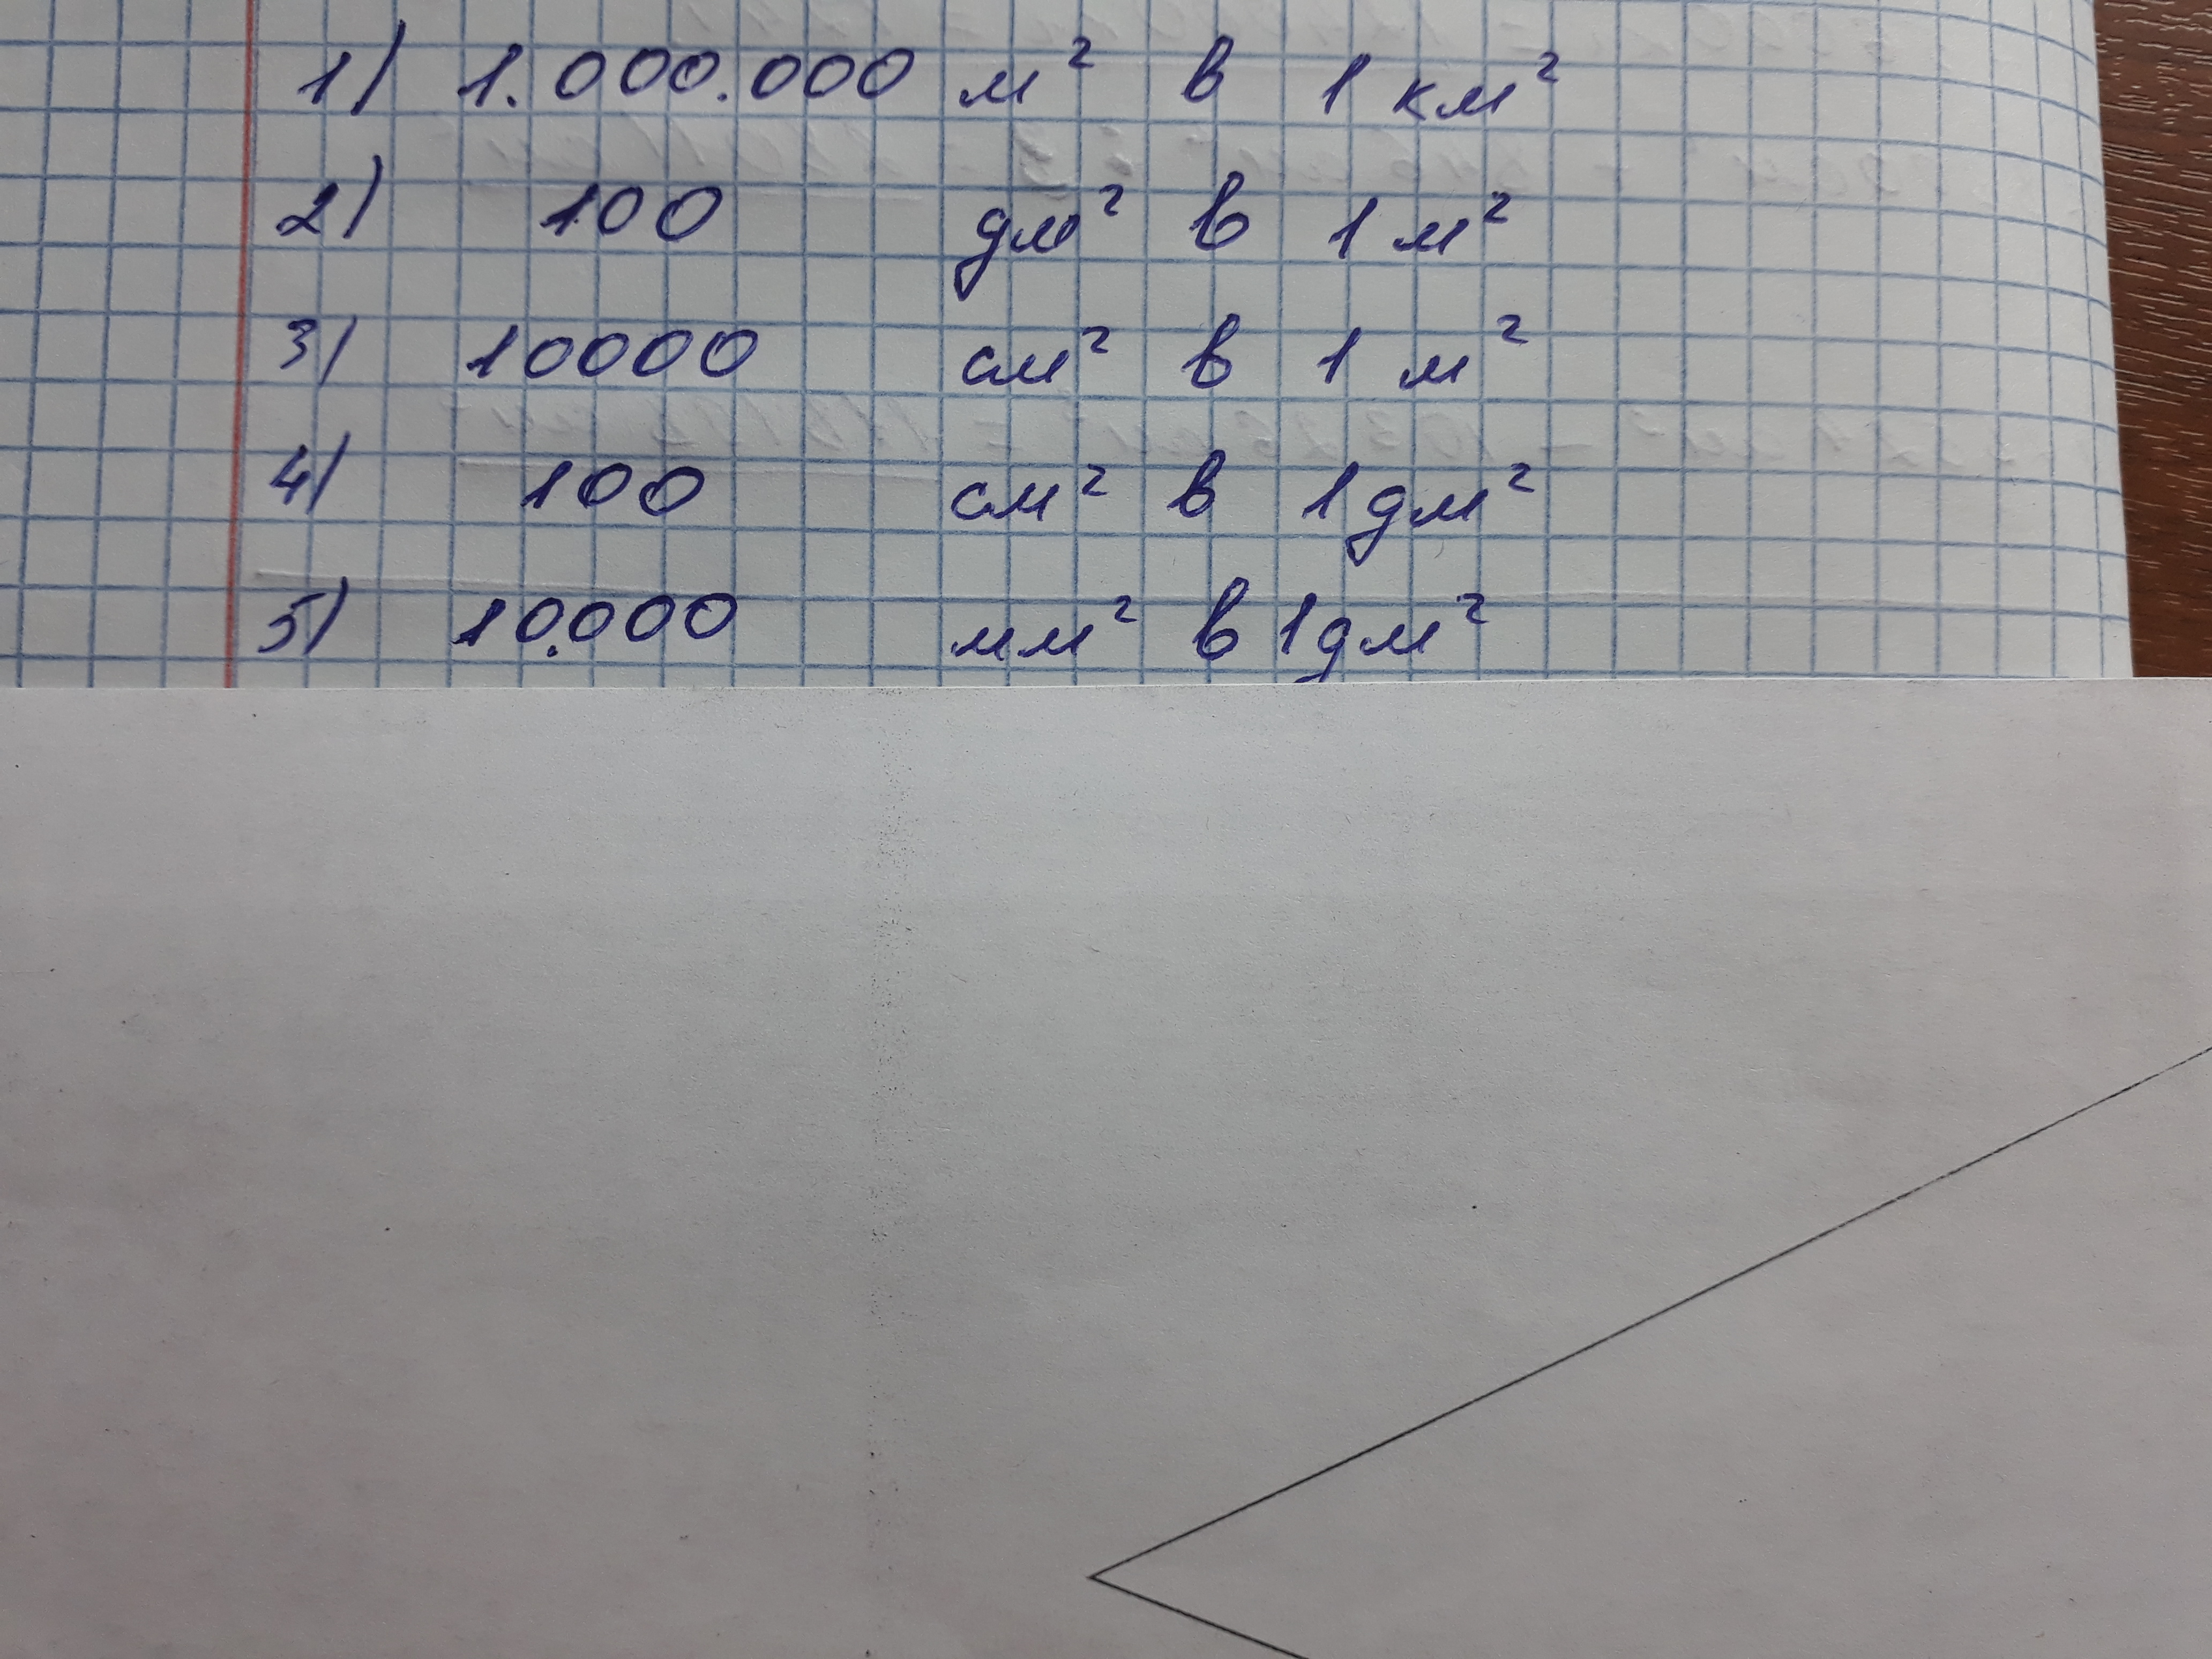 1) 1.000.000 м² в 1 км²
2) 100 дм² в 1 м²
3) 10000 см² в 1 м²
4) 100 см² в 1 дм²
5) 10.000 мм² в 1 дм²